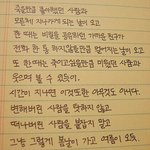 죽을만큼 좋아했던 사람과
모른체 지나가게 되는 날이 오고
한 때는 비밀을 공유하던 가까운 친구가
전화 한 통 하지않을만큼 멀어지는 날이 오고
또 한때는 죽이고싶을만큼 미웠던 사람과
웃으며 볼 수 있듯이.
시간이 지나면 이것또한 아무것도 아니다.
변해버린 사람을 탓하지 않고
떠나버린 사람을 붙잡지 말고
그냥 그렇게 봄날이 가고 여름이 오듯.